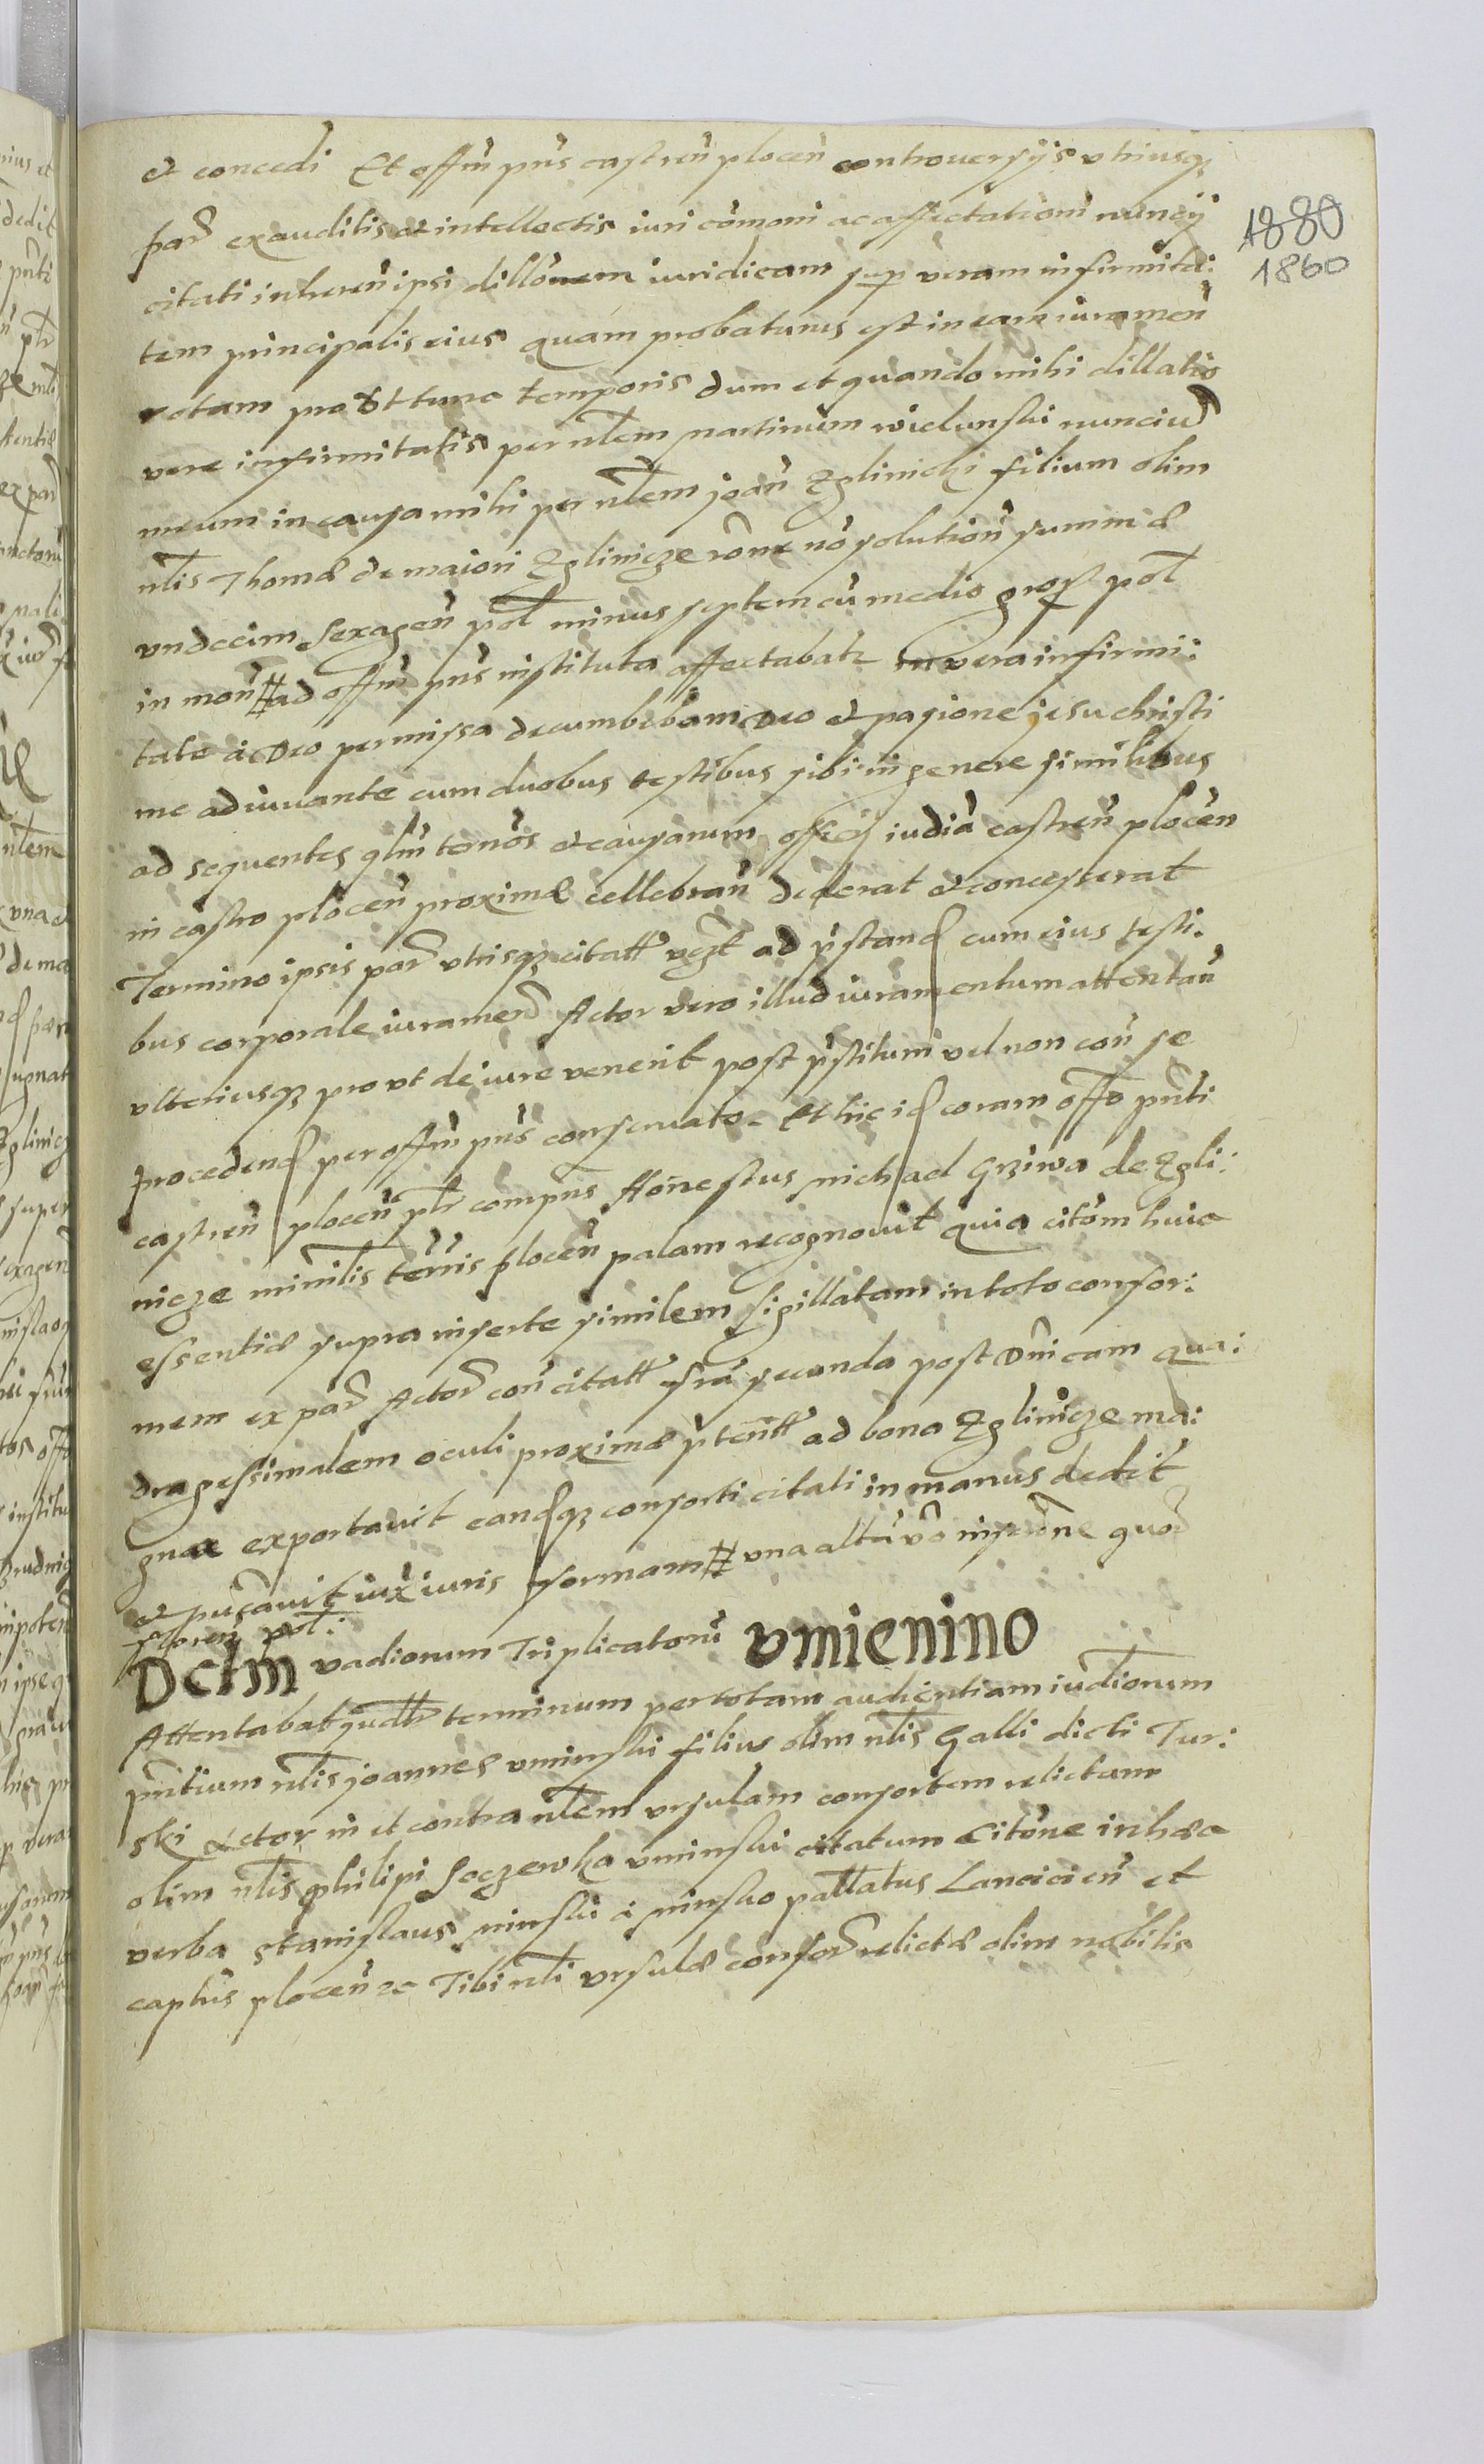 et concedi Et offm pns castren plocen controuersijs vtriusq
par exauditis et intellectis iuri comoni ac affectationi nuncij
citati inheren ipsi dillonem iuridicam sup veram infirmita:
tem principalis eius quam probaturus est in eam iuramen
rotam pro vt tunc temporis dum et quando mihi dillatio
vere infirmitatis per nlem martinum wielunski nunciu
meum in causa mihi per nlem joan Zglinicki filium olim
nlis Thomæ de maiori Zglinicze rone no solution summæ
vndecim sexagen pol minus septem cu medio gros pol
in mon # ad offm pns instituta affectabatr in vera infirmi:
tate a Deo permissa decumbebam Deo et pasione jesu christi
me adiuuante cum duobus testibus sibi in genere similibus
ad sequentes qlm termos et causarum officij iudicia castren plocen
in castro plocen proxime cellebran dederat et concesserat
Termino ipsis par vtrisq citatt ad pstand cum eius testi.
bus corporale iuramen Actor vero illud iuramentum attentan
vlteriusq pro vt de iure venerit post pstitum vel non con se
procedend per offm pns conseruato. Et hic id coram offo pnti
castren plocen ptr compns Honestus michael Grziwa de Zgli:
nicze minilis terris plocen palam recognouit quia citom huic
essentiæ supra inserte similem sigillatam in toto confor:
mem ex par Actor con citatt fria secunda post Dnicam qua:
dragessimalem oculi proxime pteritt ad bona Zglinicze ma:
gnæ exportauit eandq consorti citati in manus dedit
et pucauit iux iuris formam # vna altu vo inscrione quor
floren pol:
Dclm vadiorum Triplicatoru vmienino
Attentabat terminum per totam audientiam iudiorum
pntium nlis joannes vminski filius olim nlis Galli dicti Tur:
ski Actor in et contra nlem vrsulam consortem relictam
olim nlis philipi Soczewka vminski citatum citone in hæc
verba stanislaus minski a minsko pallatus Lancicien et
captus plocen zc Tibi nli vrsulæ consor relictæ olim nobilis
1880
1860